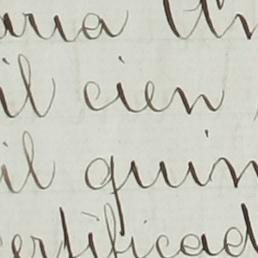 aria th
il cien
il quin
ertificad